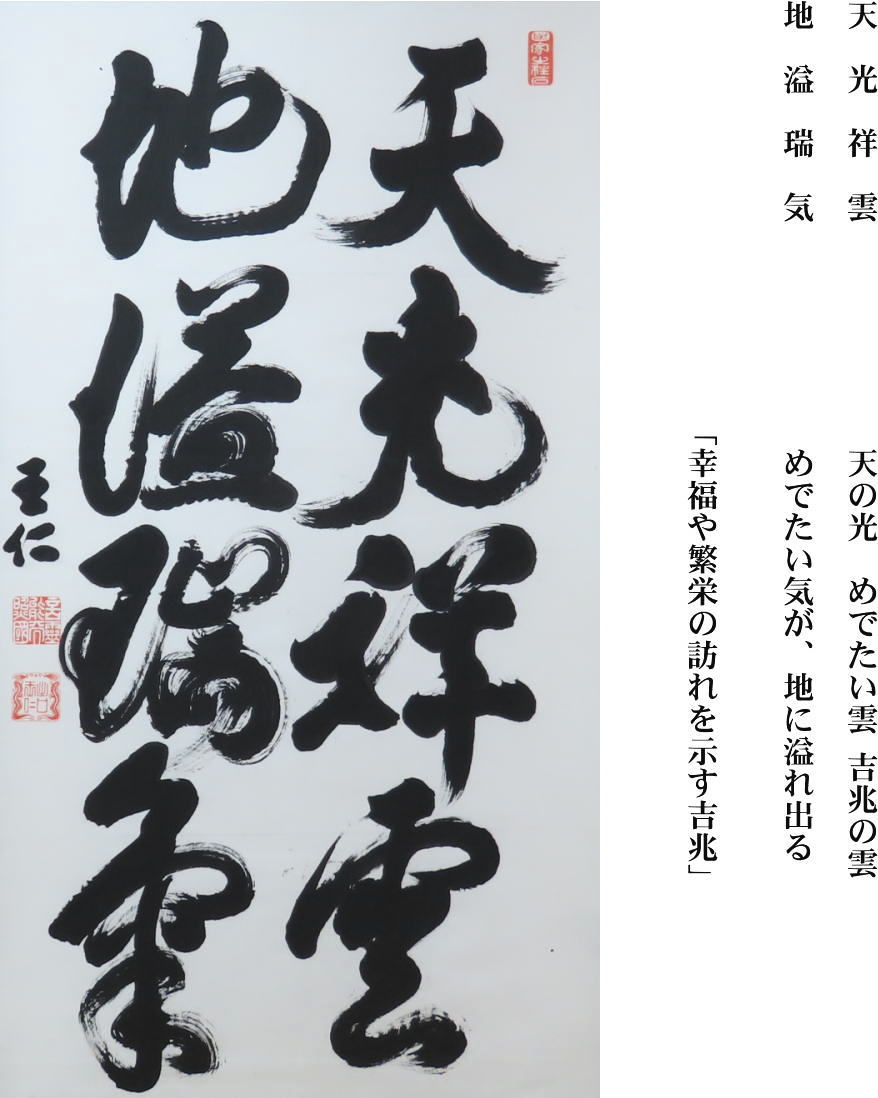 天光祥雲
地溢瑞気
天の光　めでたい雲 吉兆の雲
めでたい気が、地に溢れ出る
「幸福や繁栄の訪れを示す吉兆」
天光祥雲
地溢瑞氣
王仁